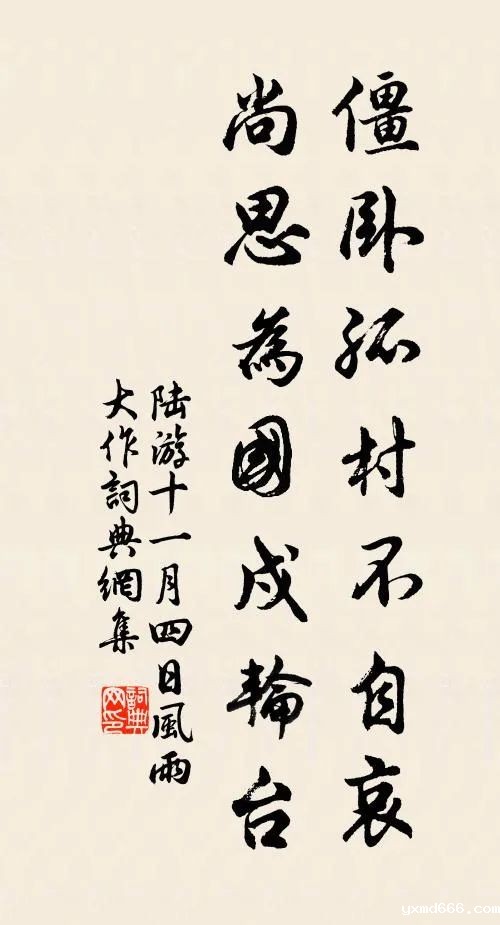 僵卧孤村不自哀
尚思為國戍輪台
陆游十一月四日風雨
大作詞典網集
詞典网印
yxmd666.com